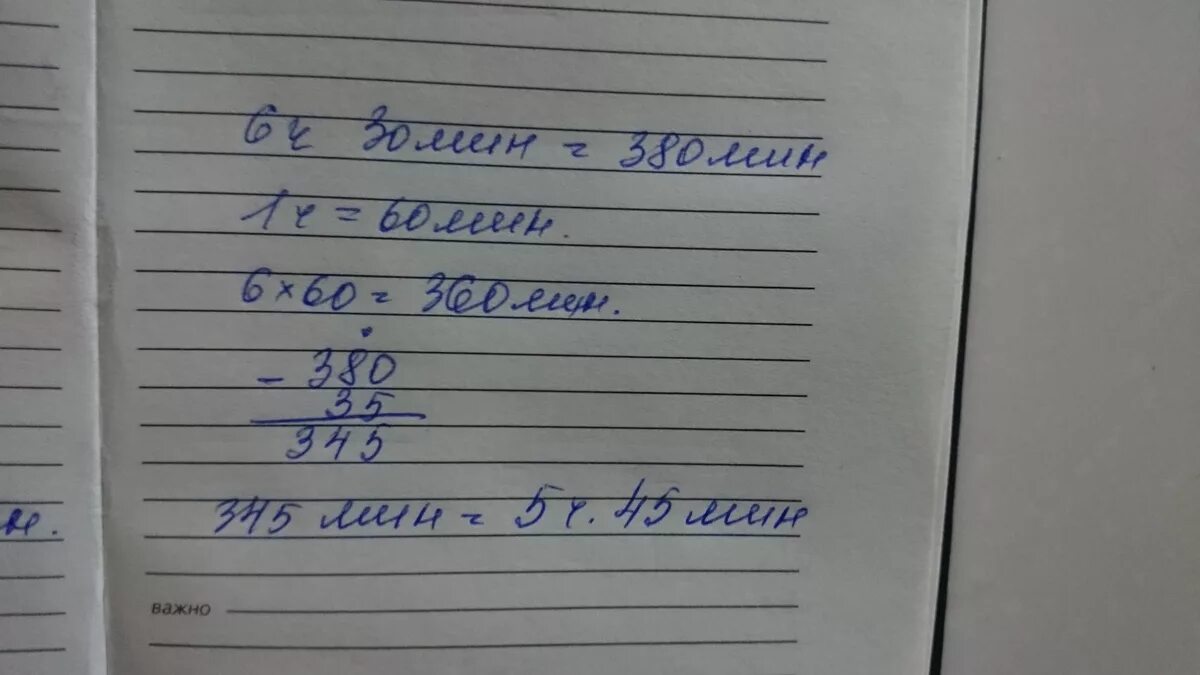 6ч 30мин = 380мин
1ч = 60мин.
6×60 = 360мин.
- 380
35
345
н. 345 мин = 5ч. 45мин
важно